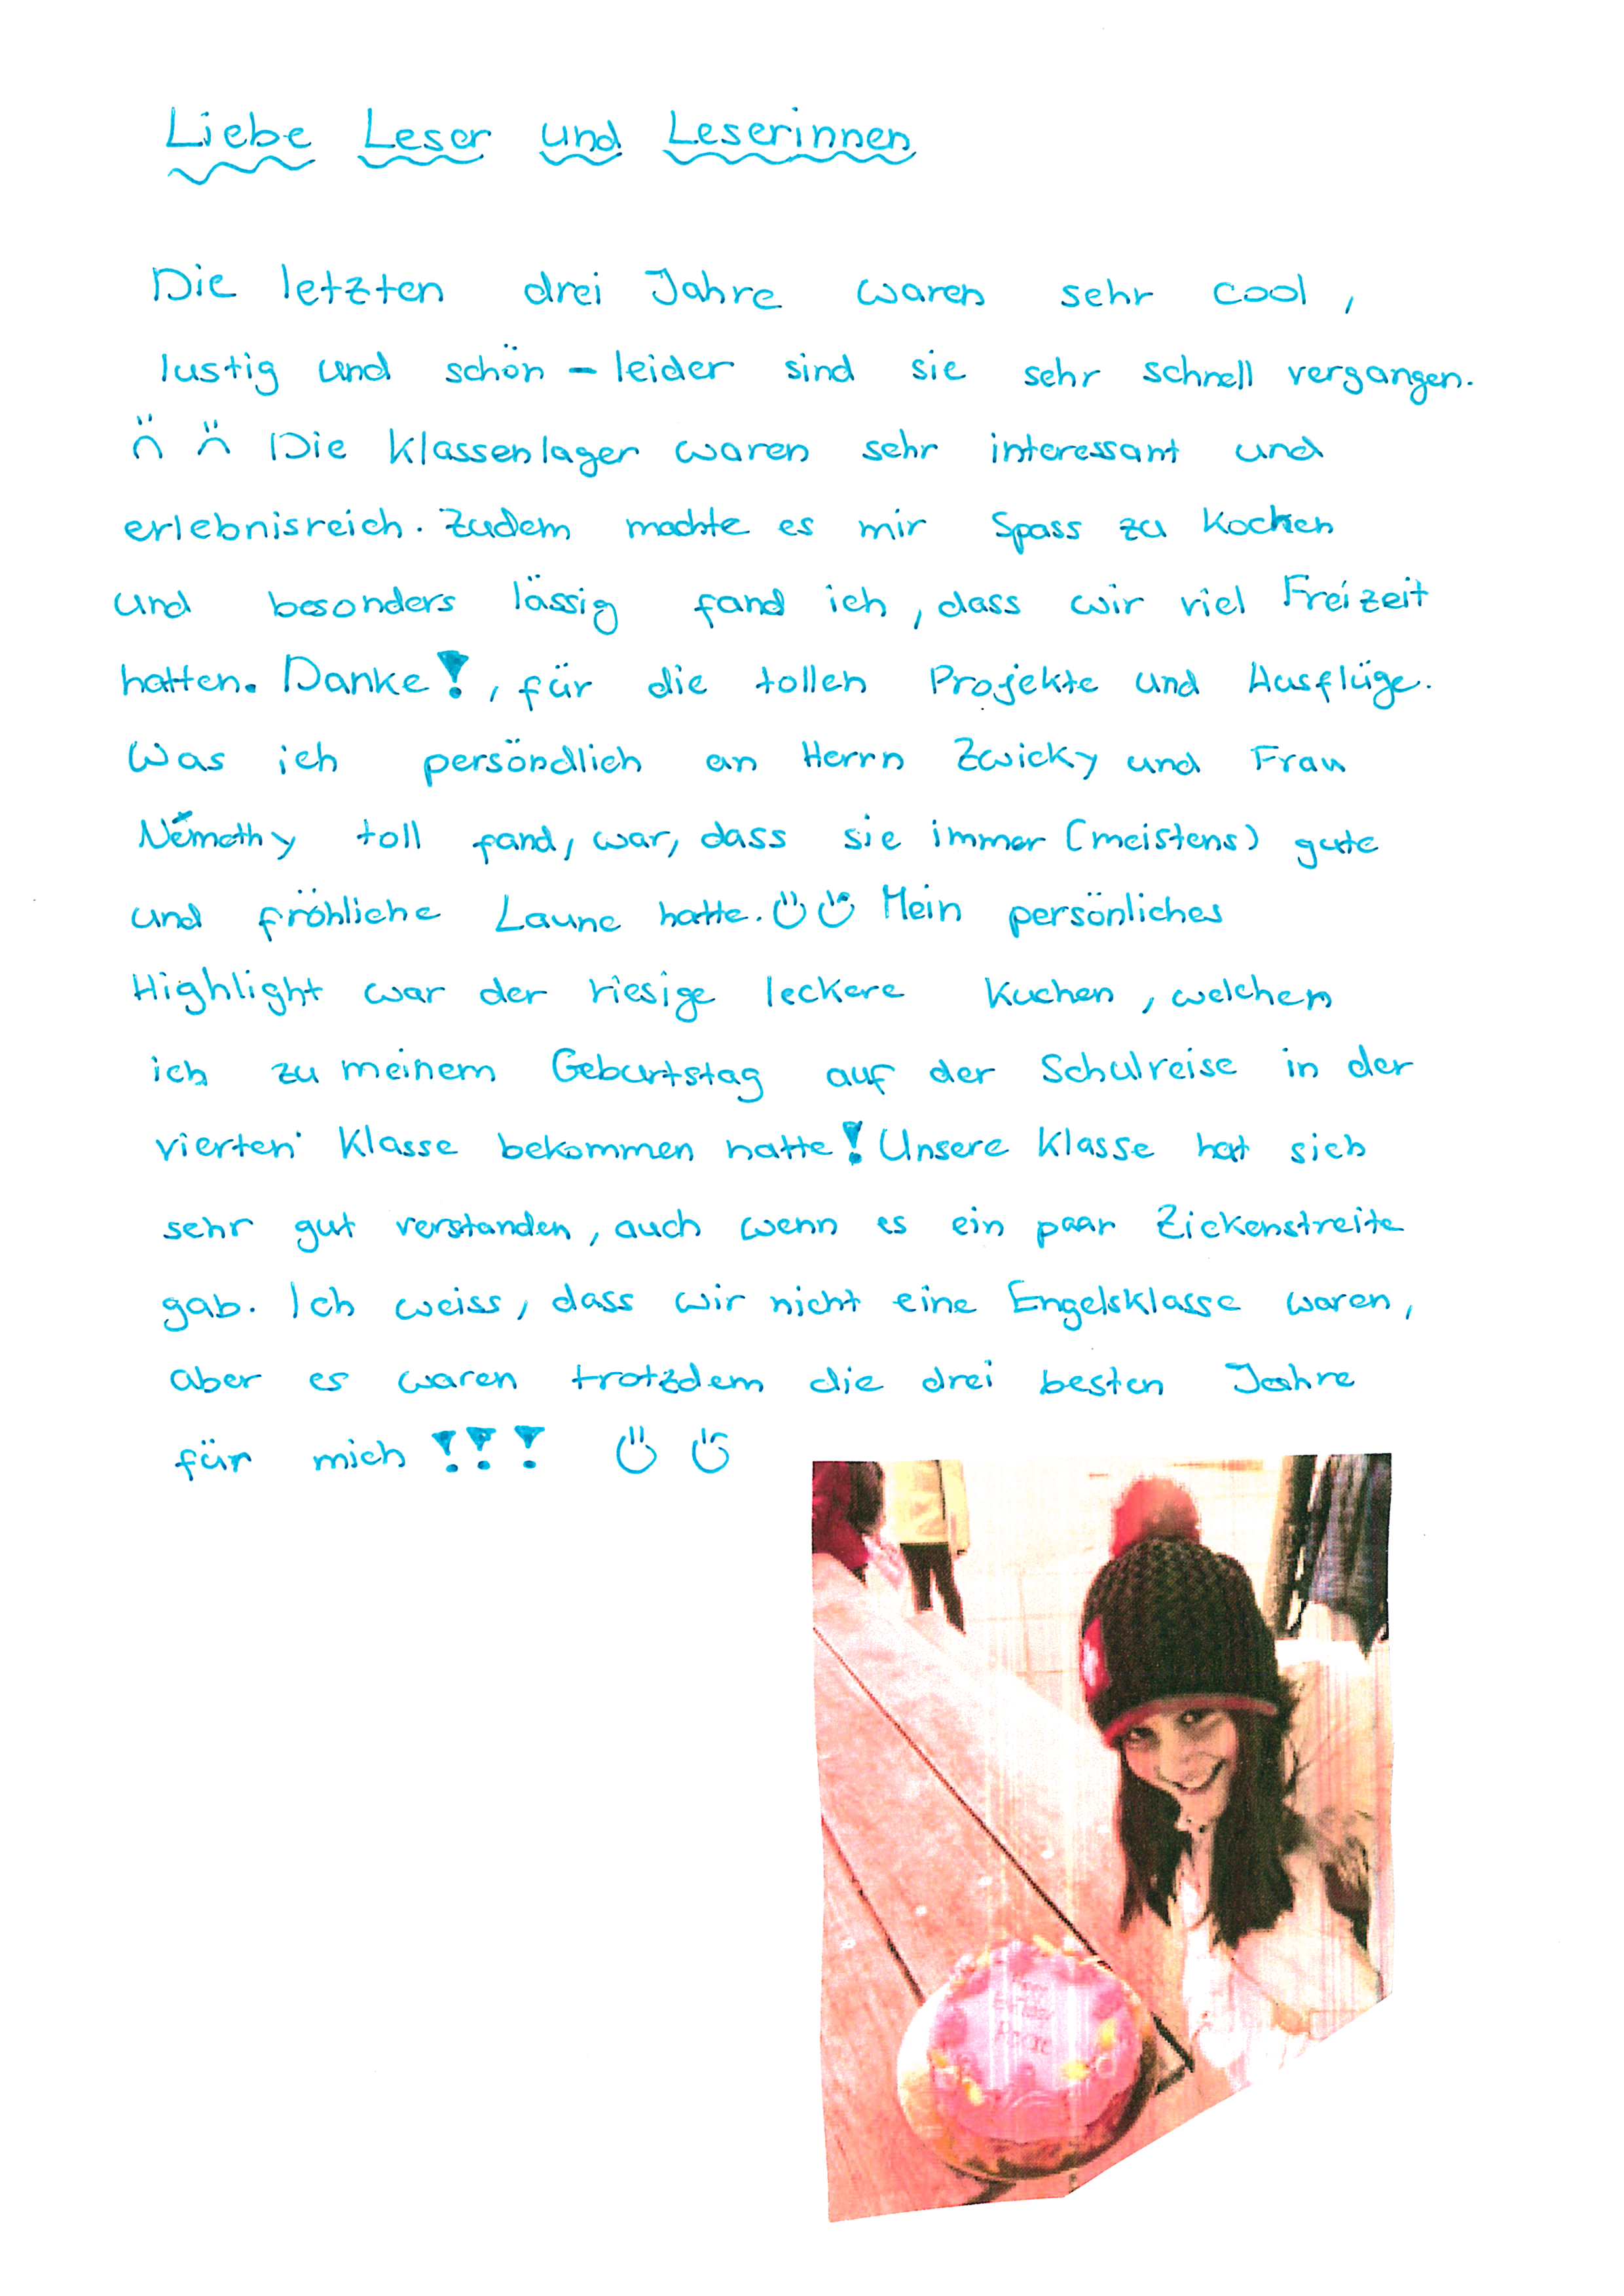 Liebe Leser und Leserinnen
Die letzten drei Jahre waren sehr cool,
lustig und schön – leider sind sie sehr schnell vergangen.
Die Klassenlager waren sehr interessant und
erlebnisreich. Zudem machte es mir Spass zu kochen
und besonders lässig fand ich, dass wir viel Freizeit
hatten. Danke!, für die tollen Projekte und Ausflüge.
Was ich persöndlich an Herrn Zwicky und Frau
Némethy toll fand, war, dass sie immer (meistens) gute
und fröhliche Laune hatte. Mein persönliches
Highlight war der riesige leckere Kuchen, welchen
ich zu meinem Geburtstag auf der Schulreise in der
vierten Klasse bekommen hatte! Unsere Klasse hat sich
sehr gut verstanden, auch wenn es ein paar Zickenstreite
gab. Ich weiss, dass wir nicht eine Engelsklasse waren,
aber es waren trotzdem die drei besten Jahre
für mich!!!